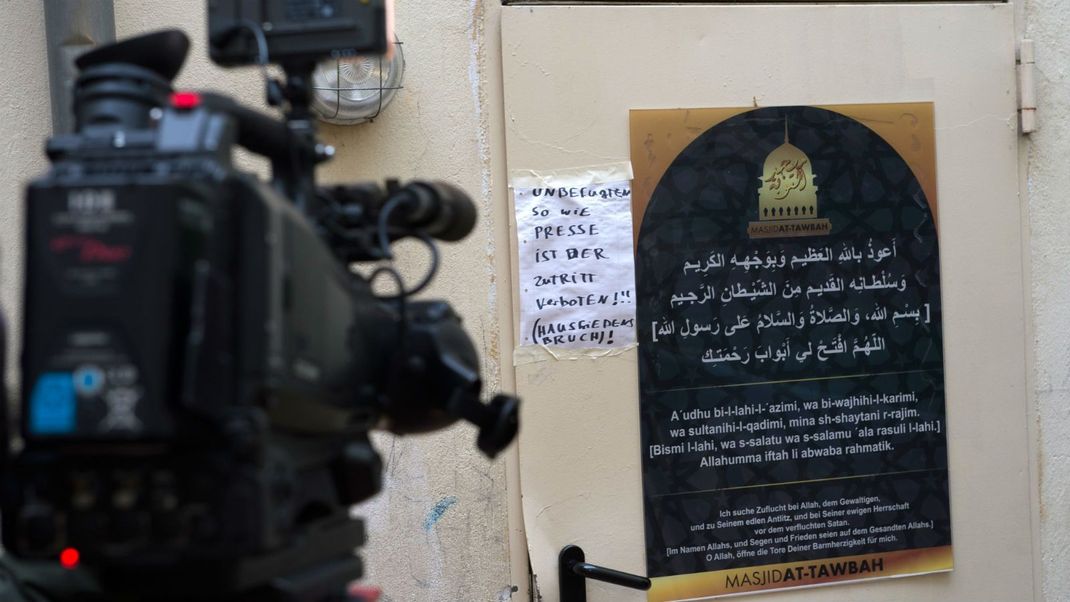 · UNBEFUGTEN
SO WIE
· PRESSE
IST DER
· ZUTRITT
VERBOTEN!!!
· (HAUSFRIEDENS
BRUCH)!
مسجد التوبة
MASJIDAT-TAWBAH
أَعوذُ بِاللهِ العَظيـم وَبِوَجْهِـهِ الكَريـم
وَسُلْطـانِه القَديـم مِنَ الشّيْـطانِ الرَّجـيم
[ بِسْـمِ الله، وَالصَّلاةُ وَالسَّلامُ عَلى رَسولِ الله]
اللّهُـمَّ افْتَـحْ لي أَبْوابَ رَحْمَتـِك
A´udhu bi-l-lahi-l-´azimi, wa bi-wajhihi-l-karimi,
wa sultanihi-l-qadimi, mina sh-shaytani r-rajim.
[Bismi l-lahi, wa s-salatu wa s-salamu ´ala rasuli l-lahi.]
Allahumma iftah li abwaba rahmatik.
Ich suche Zuflucht bei Allah, dem Gewaltigen,
und zu Seinem edlen Antlitz, und bei Seiner ewigen Herrschaft
vor dem verfluchten Satan.
[Im Namen Allahs, und Segen und Frieden seien auf dem Gesandten Allahs.]
O Allah, öffne die Tore Deiner Barmherzigkeit für mich.
MASJIDAT-TAWBAH